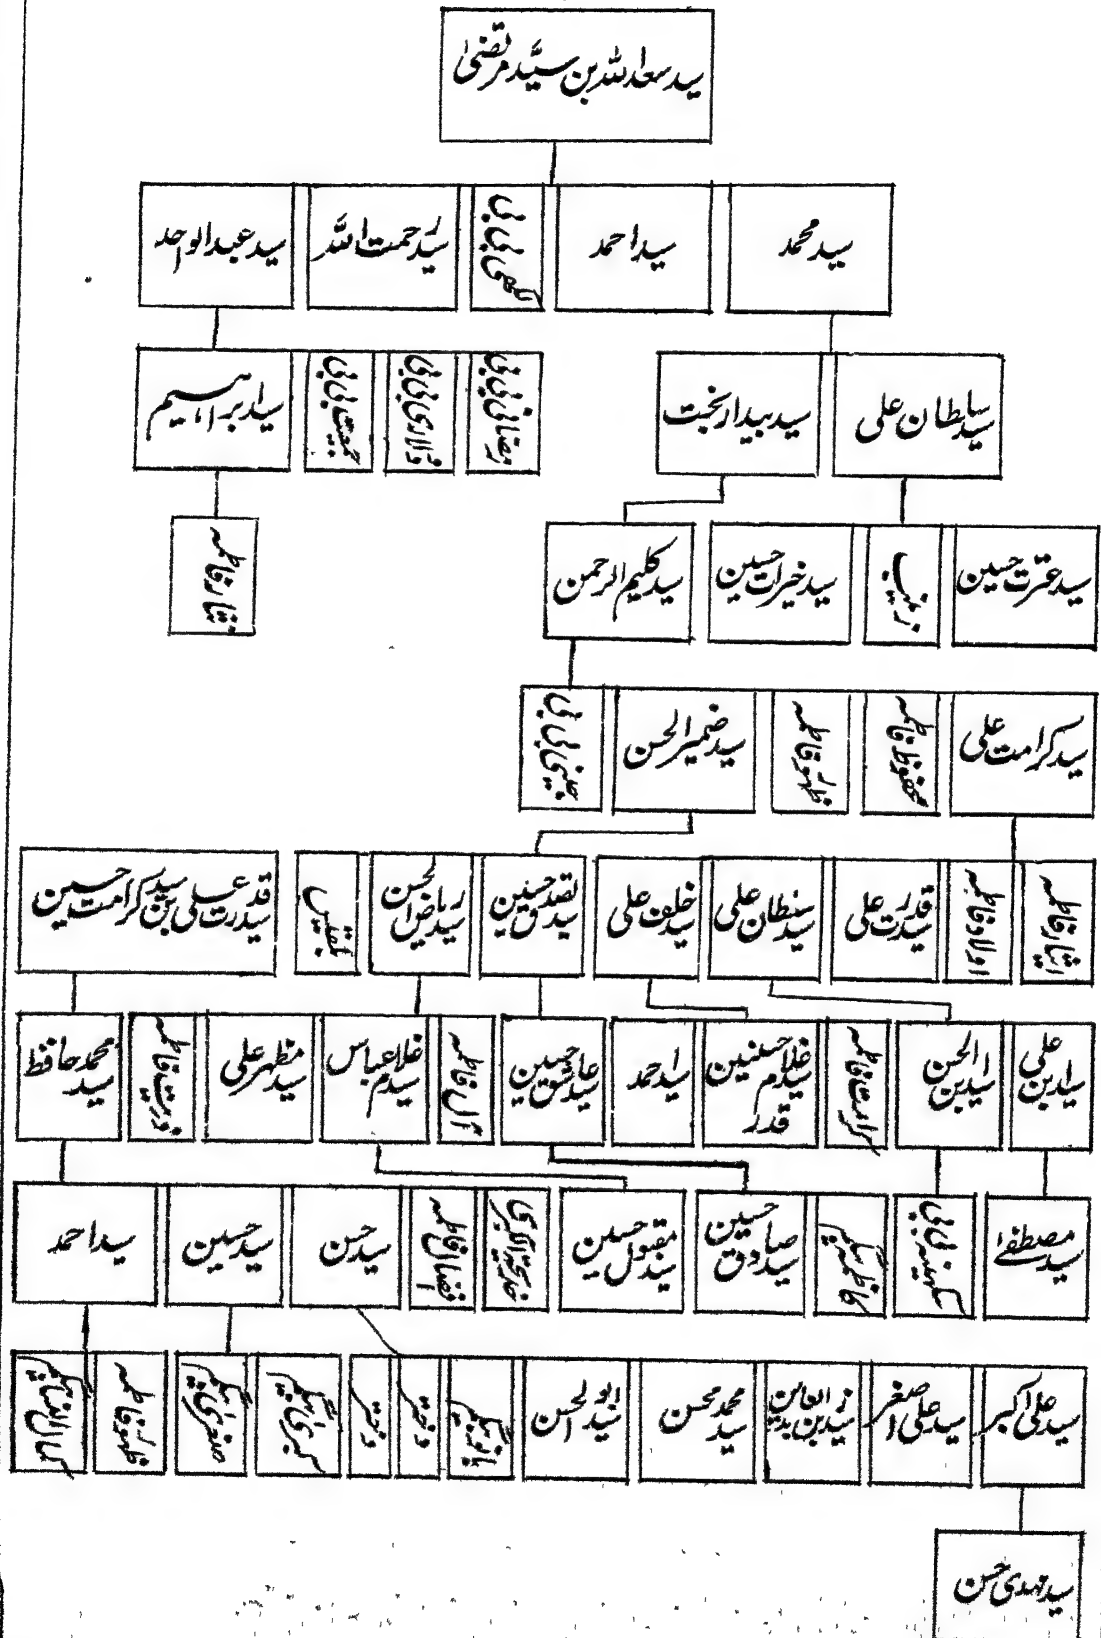 سید سعد اللہ بن سید مرتضیٰ
سید محمد
سید احمد
لکھی بی بی
سید رحمت اللہ
سید عبدالواحد
سید سلطان علی
سید بیدار بخت
رمضانی بی بی
دلاری بی بی
جمعیت بی بی
سید ابراہیم
سید عترت حسین
زینب
سید خیرات حسین
سید کلیم الرحمن
نثار فاطمہ
سید کرامت علی
محفوظ فاطمہ
ظہور فاطمہ
سید ضمیر الحسن
جینی بی بی
ایثار فاطمہ
اولاد فاطمہ
سید قدرت علی
سید سلطان علی
سید خلف علی
سید تصدق حسین
سید ریاض الحسن
بلقیس
سید قدرت علی بن سید کرامت حسین
سید ابن علی
سید ابن الحسن
کرامت فاطمہ
سید غلام حسنین قدر
سید احمد
سید عاشق حسین
آل فاطمہ
سید غلام عباس
سید مظہر علی
ذریت فاطمہ
سید محمد حافظ
سید مصطفےٰ
سکینہ بی بی
کاظمہ بیگم
سید صادق حسین
سید مقبول حسین
خدیجۃ الکبری
فضال فاطمہ
سید حسن
سید حسین
سید احمد
سید علی اکبر
سید علی اصغر
سید زین العابدین
سید محمد محسن
سید ابوالحسن
بانو بیگم
دختر
دختر
کبریٰ بیگم
صغریٰ بیگم
ظہور فاطمہ
کمال النساء بیگم
سید مہدی حسن